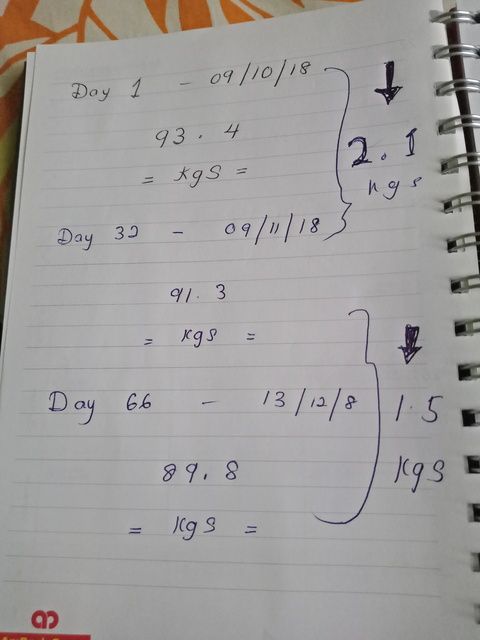 Day 1 - 09/10/18
93.4
= KgS =
2.1
Kgs
Day 32 - 09/11/18
91.3
= KgS =
Day 66 - 13/12/8
1.5
KgS
89.8
= KgS =